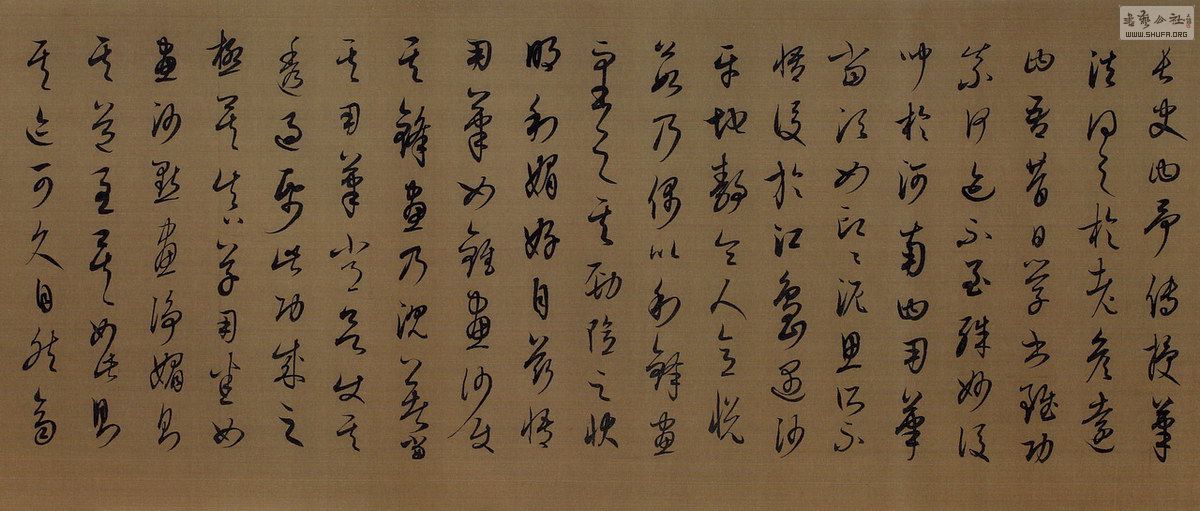 長史曰予傳授筆
法得之於老彦遠
曰吾昔日學書雖功
奈何迹不至殊妙後
於河南曰用筆
當須如印印泥思所不
悟後於江島遇沙
平地靜令人意悅
欲乃偶以利鋒畫
而書之其勁險之狀
明利媚好自茲悟
用筆如錐畫沙使
其鋒畫乃沉著當
其用筆常欲使其
透過紙此功成之
極矣真草用筆悉如
畫沙點畫淨媚則
其道至矣如此則
其迹可久自然齊
書藝公社
WWW.SHUFA.ORG